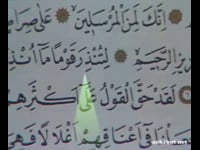 إِنَّكَ لَمِنَ الْمُرْسَلِينَ ۞ عَلَىٰ صِرَاطٍ
الرَّحِيمِ ۞ لِتُنذِرَ قَوْمًا مَّا أُنذِرَ
لَقَدْ حَقَّ الْقَوْلُ عَلَىٰ أَكْثَرِهِمْ
فِي أَعْنَاقِهِمْ أَغْلَالًا فَهِيَ